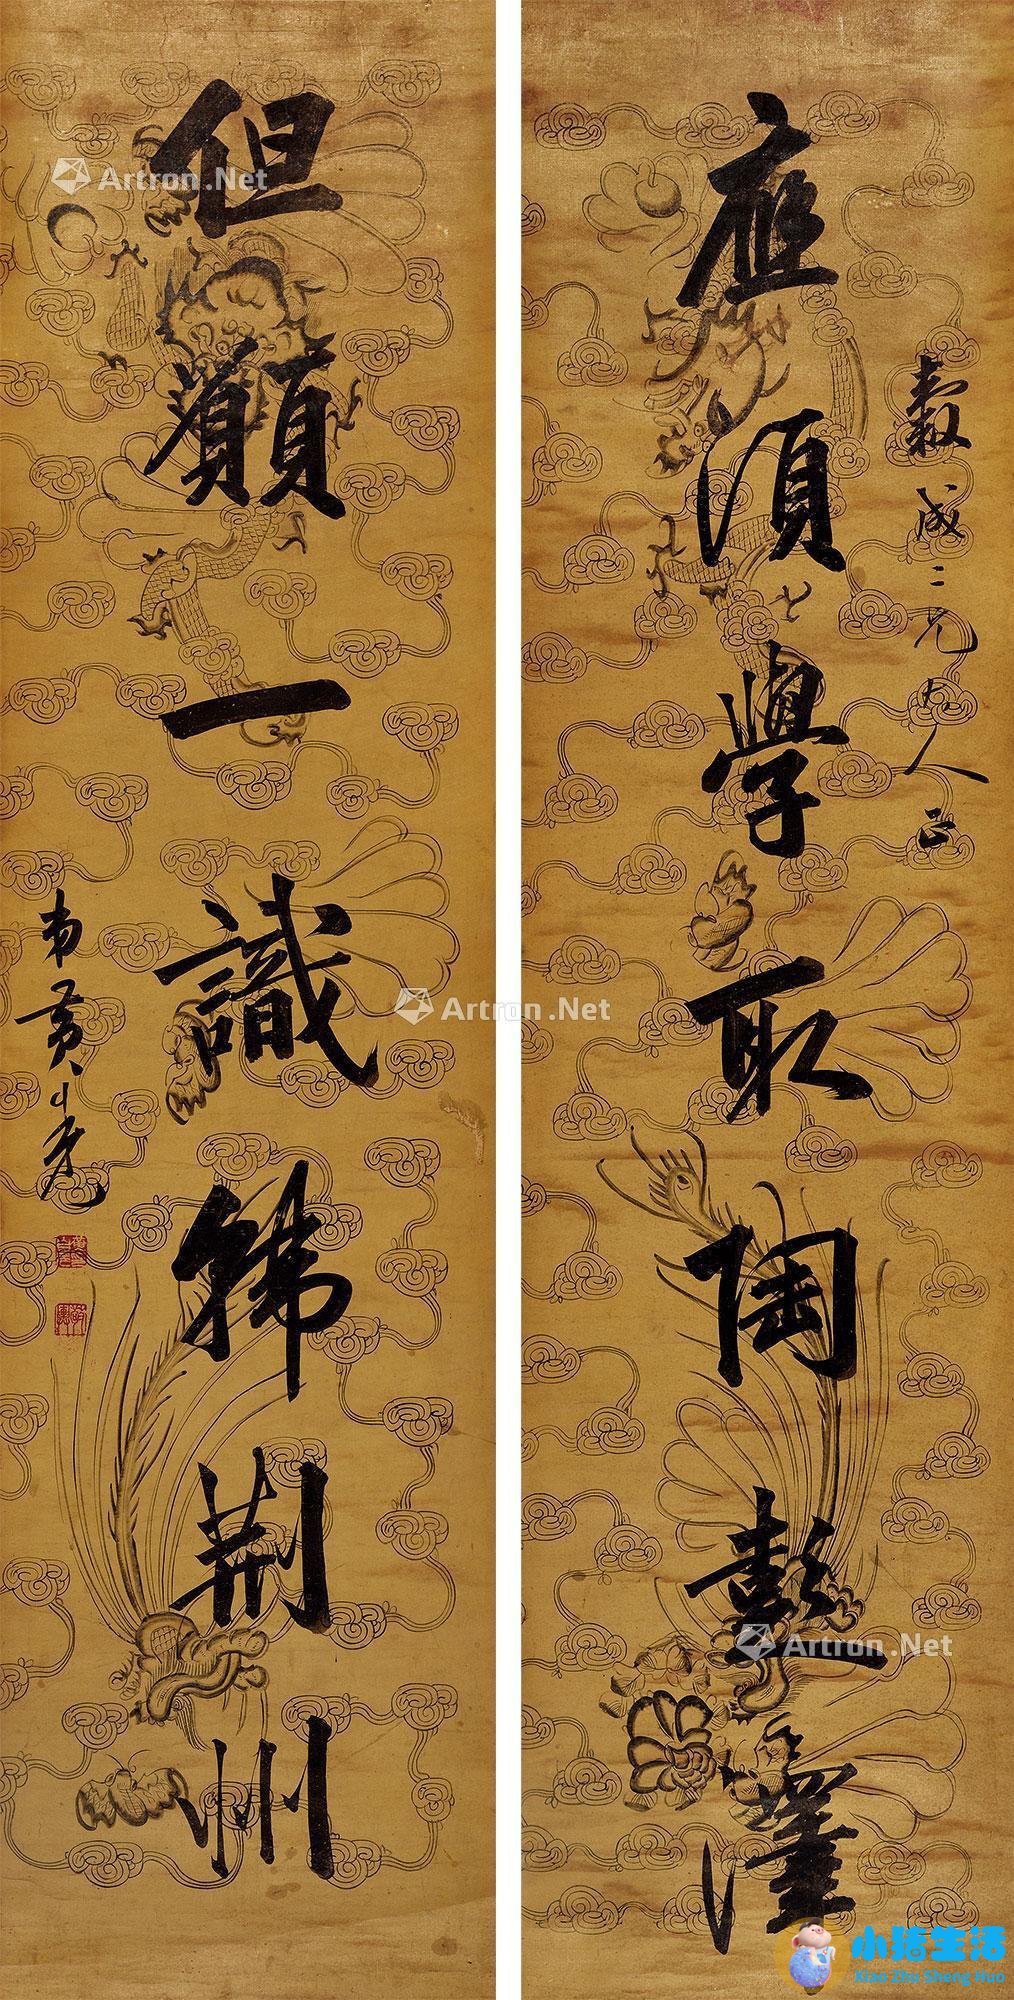 應須學取陶彭澤
穀成二兄大人正
但願一識韓荆州
弟黃
Artron.Net
Artron.Net
Artron.Net
小猪生活
Xiao Zhu Sheng Huo